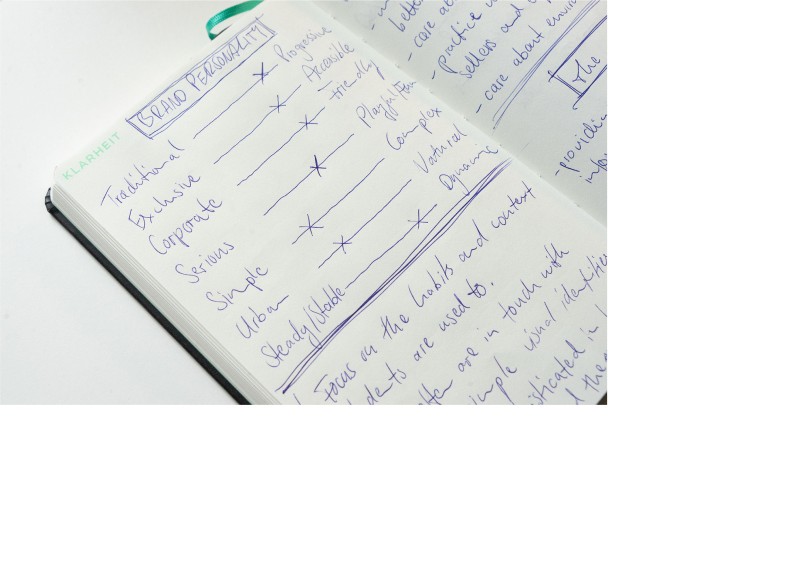 KLARHEIT
BRAND PERSONALITY
Traditional Progressive
Exclusive Accessible
Corporate Friendly
Serious Playful/Fun
Simple Complex
Urban Natural
Steady/Stable Dynamic
Focus on the habits and content
are used to.
are in touch with
visual identities
in
bette
- care ab
- practice
sellers and
- care about
The
- providi
info